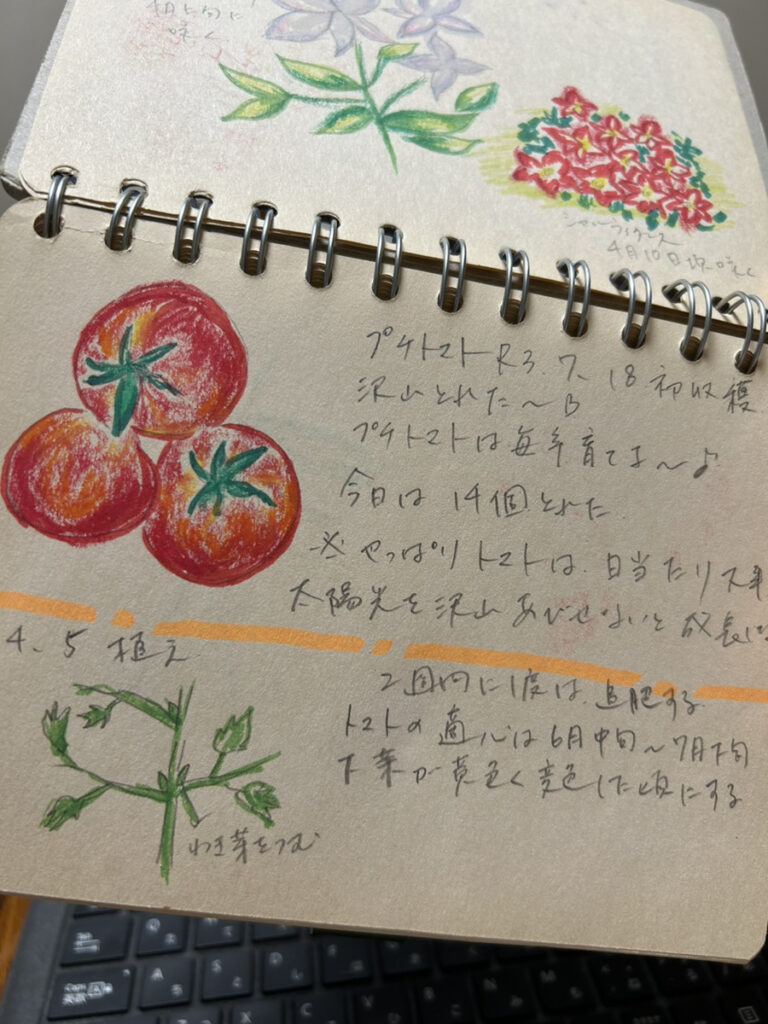 4月上旬に
咲く
4月10日頃咲く
プチトマト R3.7.18 初収穫
沢山とれた〜B
プチトマトは毎年育てま〜♪
今日は 14個とれた
※ やっぱりトマトは、日当たり大事
太陽光を沢山あびせないと 成長に
4、5 植え
2週間に1度は、追肥する
トマトの適心は6月中旬〜7月下旬
下葉が黄色く変色した頃にする
わき芽をつむ